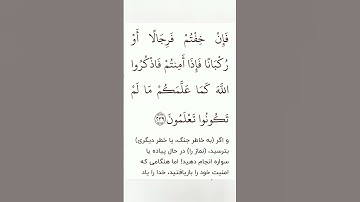 فَإِنْ خِفْتُمْ فَرِجَالًا أَوْ
رُكْبَانًا فَإِذَا أَمِنْتُمْ فَاذْكُرُوا
اللَّهَ كَمَا عَلَّمَكُمْ مَا لَمْ
تَكُونُوا تَعْلَمُونَ ﴿۲۳۹﴾
و اگر (به خاطر جنگ، یا خطر دیگری)
بترسید، (نماز را) در حال پیاده یا
سواره انجام دهید! اما هنگامی که
امنیت خود را بازیافتید، خدا را یاد